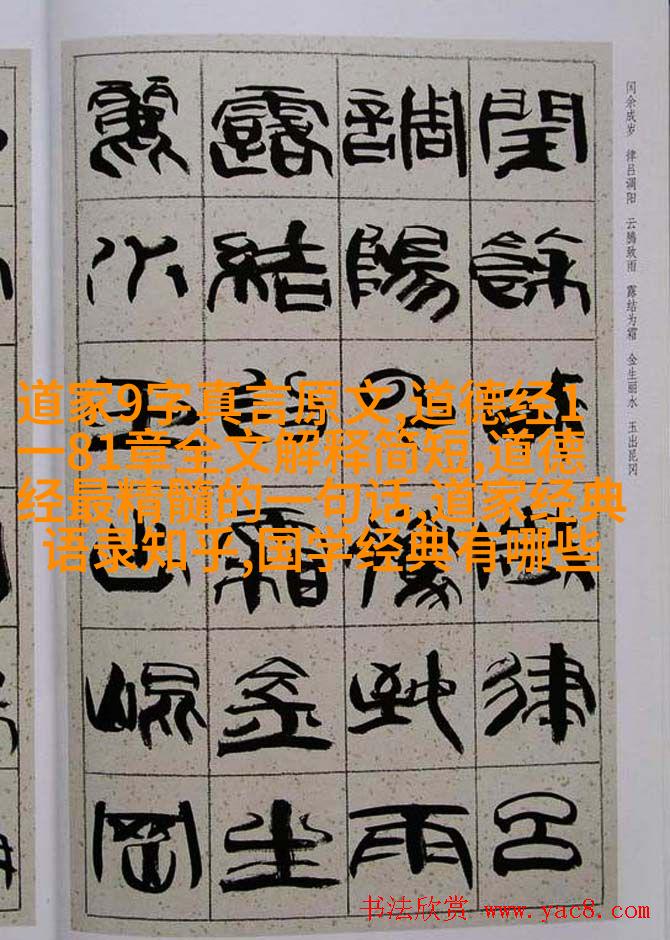 闰余成岁 律吕调阳 云腾致雨 露结为霜 金生丽水 玉出昆冈
閏餘成歲律呂
調陽云騰致雨
露結為霜金生
麗水玉出崐岡
道家9字真言原文,道德经1
一81章全文解释简短,道德
经最精髓的一句话,道家经典
语录知乎,国学经典有哪些
书法欣赏 www.yac8.com